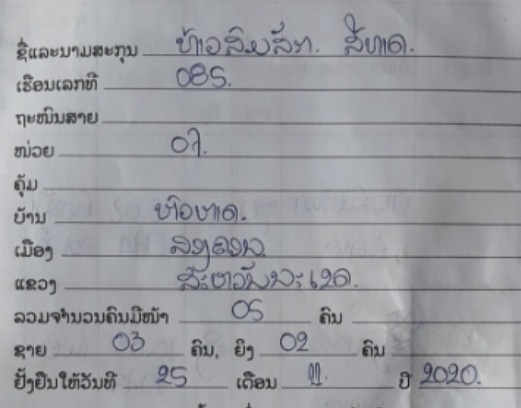 ຊື່ແລະນາມສະກຸນ ທ້າວ ສົມສັກ. ສີຫາດ.
ເຮືອນເລກທີ 085.
ຖະໜົນສາຍ
ໜ່ວຍ 07.
ຄຸ້ມ
ບ້ານ ຫົວຫາດ.
ເມືອງ ສອງຄອນ.
ແຂວງ ສະຫວັນນະເຂດ.
ລວມຈຳນວນຄົນມີໜ້າ 05 ຄົນ
ຊາຍ 03 ຄົນ, ຍິງ 02 ຄົນ
ຢັ້ງຢືນໃຫ້ວັນທີ 25 ເດືອນ 11. ປີ 2020.